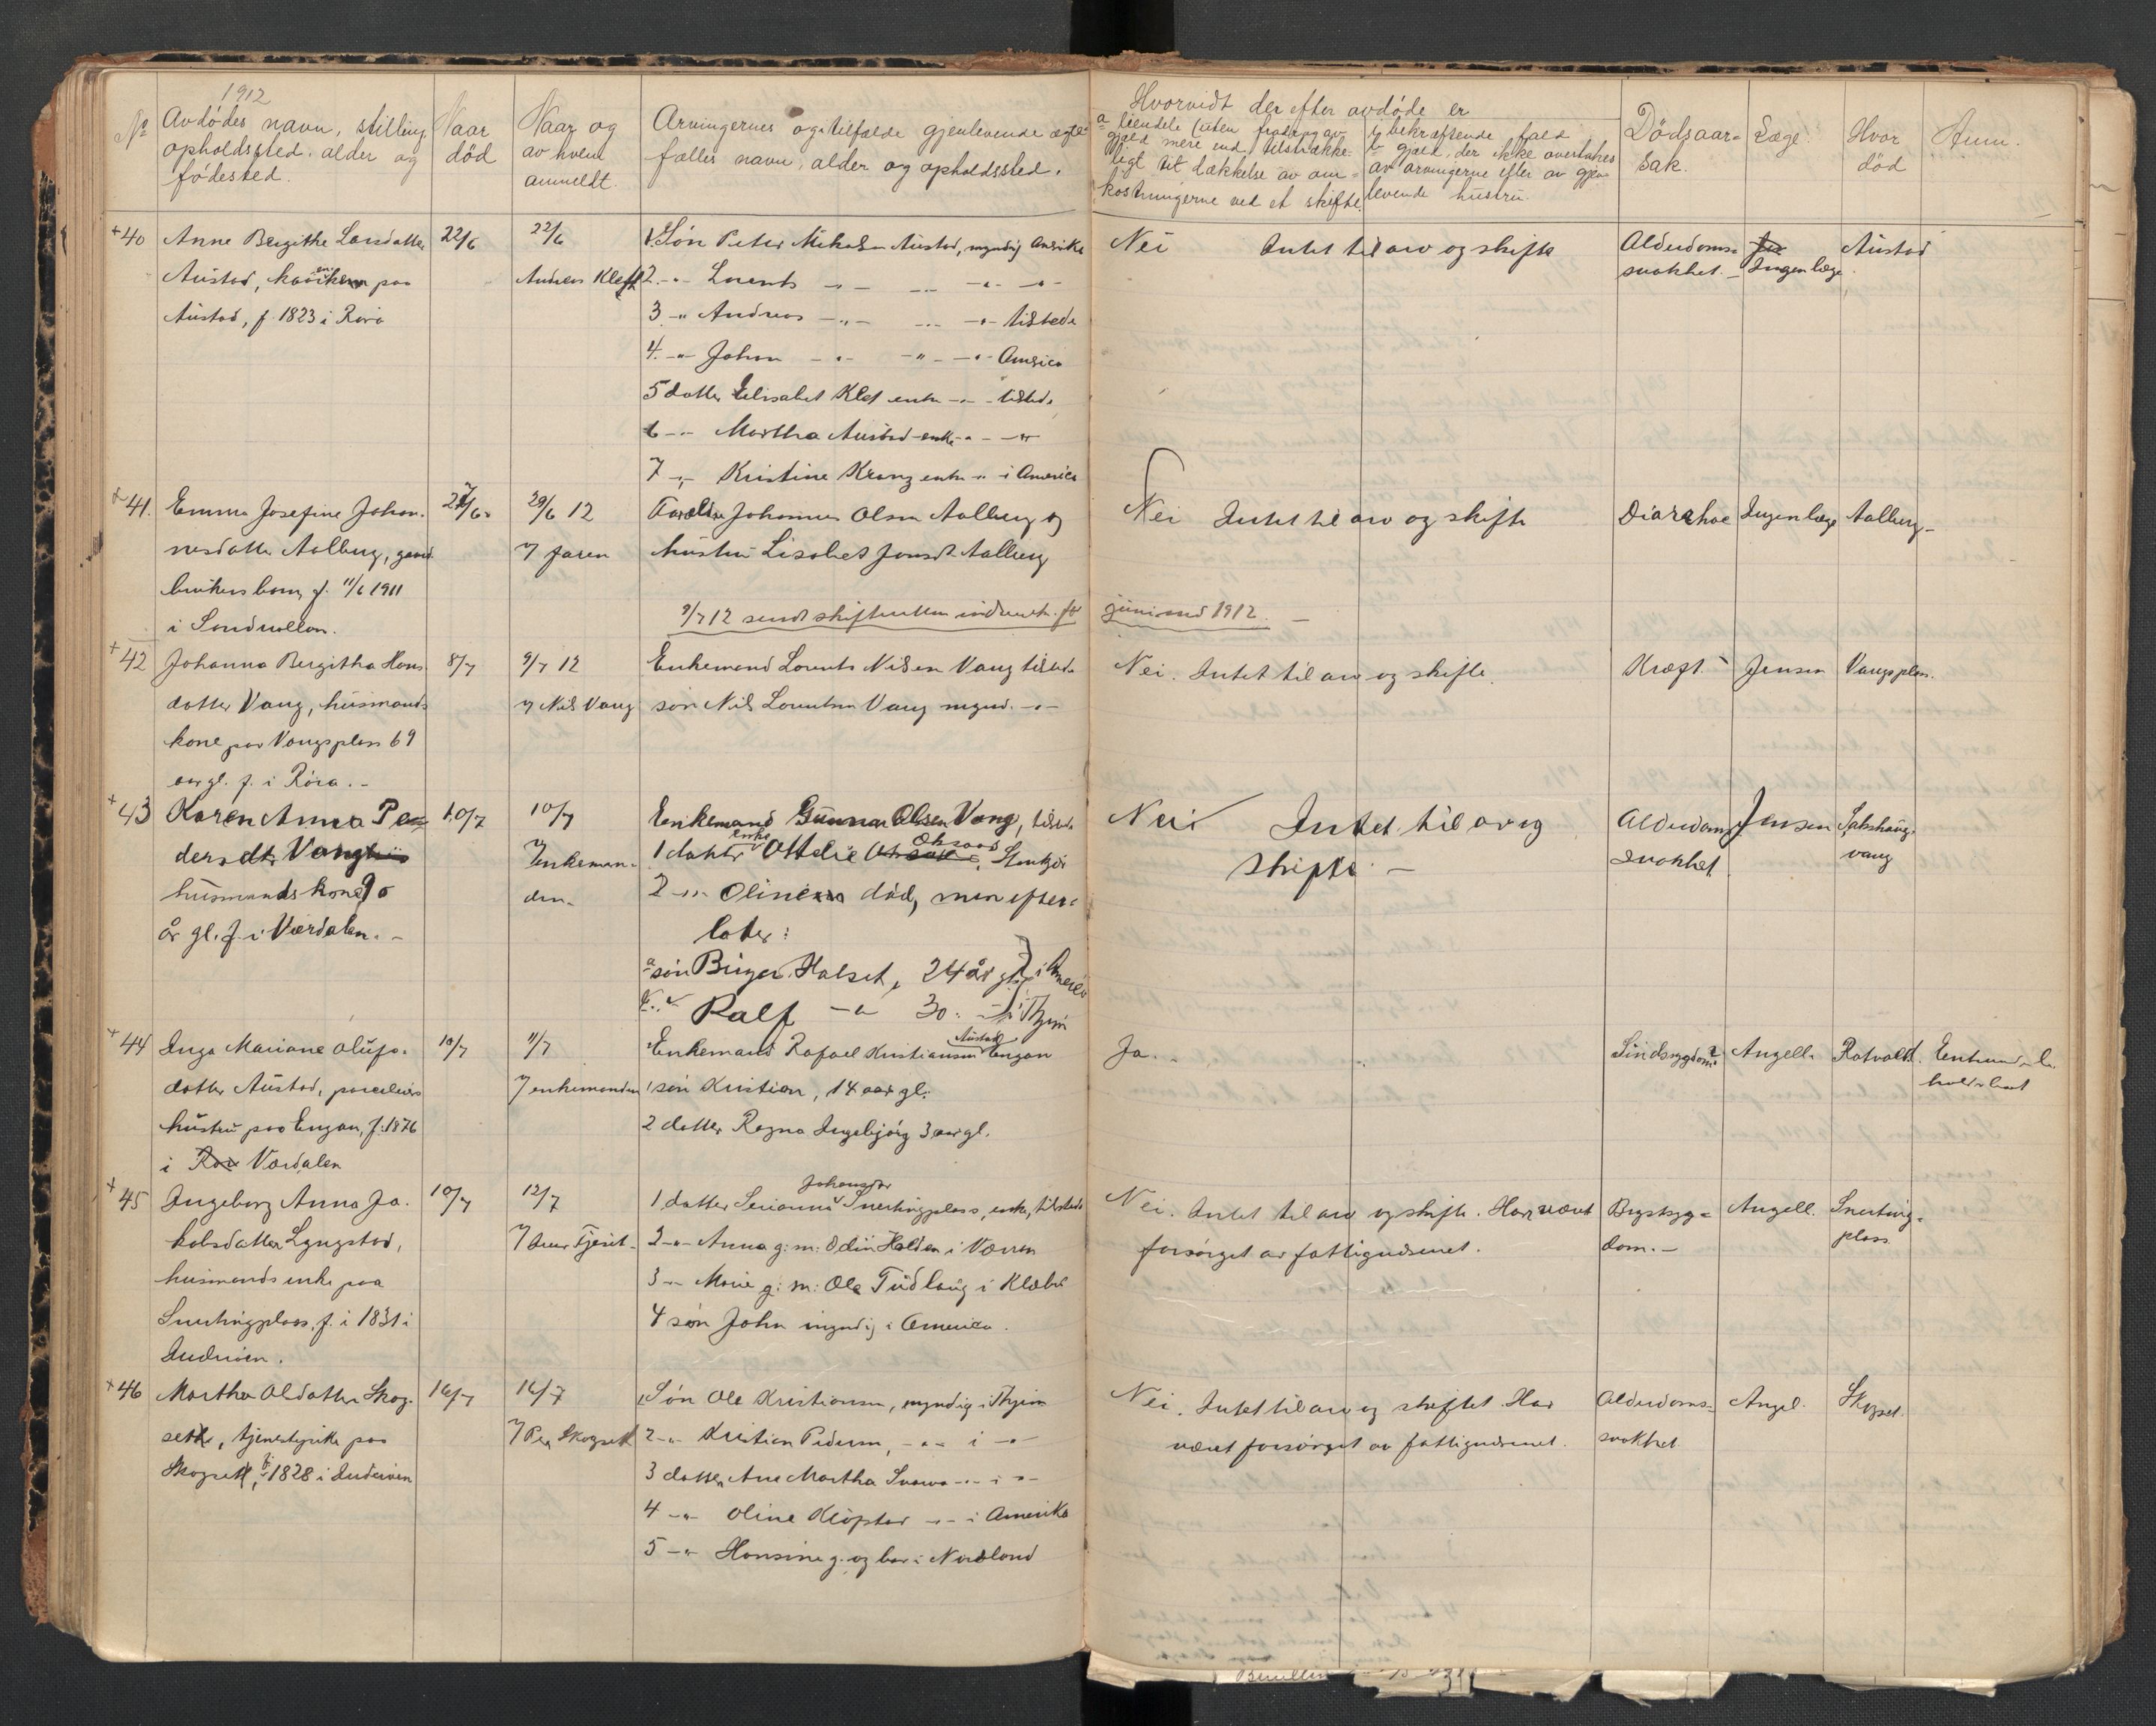 1912
No
Avdødes navn, stilling
opholdssted, alder og
fødested.
Naar
død
Naar og
av hvem
anmeldt.
Arvingernes og i tilfælde gjenlevende ægte-
fælles navn, alder og opholdssted.
Hvorvidt der efter avdøde er
a eiendele (uten fradrag av
gjæld mere end tilstrække-
ligt til dækkelse av om-
kostningerne ved et skifte.
i bekræftende fald
b gjæld, der ikke overtakes
av arvingerne efter av gjen-
levende hustru.
Dødsaar-
sak.
Læge
Hvor
død
Anm.
40 Anne Bergithe Larsdatter
Austad, paa
Austad, f. 1823 i Røra
22/6
22/6
Andreas Kleft
1 Søn Peter Mikalsen Austad, myndig Amerika
2 -"- Lorents -"- -"- -"- -"-
3 -"- Andreas -"- -"- -"- tilstede
4 -"- Johan -"- -"- -"- America
5 datter Elisabet Klef enke -"- tilstede
6 -"- Martha Austad enke -"- -"-
7 -"- Kristine Krong enke -"- i America
Nei Intet til arv og skifte
Alderdoms-
svakhet. -
Ingen læge
Austad
41. Emma Josefine Johan-
nesdatter Aalberg, gaard
brukers barn, f. 11/6 1911
i Sandvollan.
27/6
29/6 12
Faren
Forældre Johannes Olsen Aalberg og
hustru Lisabet Jonsdt Aalberg
Nei Intet til arv og skifte
Diarrhoe Ingen læge Aalberg -
9/7 12 sendt skifteretten indberetn. for juni md 1912. -
42 Johanna Bergitha Hans
datter Vang, husmands
kone paa Vangsplass 69
aar gl. f. i Røra. -
8/7
9/7 12
Nils Vang
Enkemand Lorents Nilsen Vang tilstede
søn Nils Lorentsen Vang mynd. -"-
Nei. Intet til arv og skifte.
Kræft. Jensen Vangsplass.
43 Karen Anna Pe-
dersdtr Vang
husmandskone 90
år gl. f. i Værdalen. -
10/7
10/7
Enkeman-
den -
Enkemand Gunnar Olsen Vang, tilstede
1 datter enke Ottelie Oksaas, Stenkjær
2 -"- Oline død, men efter-
later:
a søn Birger Halset, 24 år gl. i America
b -"- Ralf -"- 30 -"- i Thjem
Nei Intet til arv og
skifte -
Alderdoms
svakhet
Jensen
Sakshaug-
vang
44 Inga Mariane Olufs-
datter Austad, parcelleiers
hustru paa Engan, f. 1876
i Værdalen
10/7
11/7
enkemanden
Enkemand Rafael Kristiansen Austad Engan
1 søn Kristian, 14 aar gl.
2 datter Ragna Ingebjørg 3 aar gl.
Ja. -
Sindssygdom? Angell. Rotvold.
45 Ingeborg Anna Ja-
kobsdatter Lyngstad,
husmands enke paa
Snertingplass, f. i 1831 i
Inderøen.
10/7
12/7
1 datter Serianna Johansdtr Snertingplass, enke, tilstede
2 -"- Anna g. m. Odin Halden i Værran
3 -"- Marie g. m. Ole Tudlaug i Klæbu
4 søn John myndig i America.
Nei. Intet til arv og skifte. Har været
forsørget av fattigvæsenet.
Brystsyg-
dom. -
Angell. Snerting-
plass
46 Martha Olsdatter Skog-
sett, tjenestepike paa
Skogset, f. 1828 i Inderøen
16/7
16/7
Per Skogset
1 Søn Ole Kristiansen, myndig i Thjem
2 -"- Kristian Pedersen, -"- i -"-
3 datter Ane Martha -"- i -"-
4 -"- Oline -"- i Amerika
5 -"- Hansine g. og bor i Nordland
Nei. Intet til arv og skiftet. Har
været forsørget av fattigvæsenet.
Alderdoms-
svakhet.
Angel. Skogset.